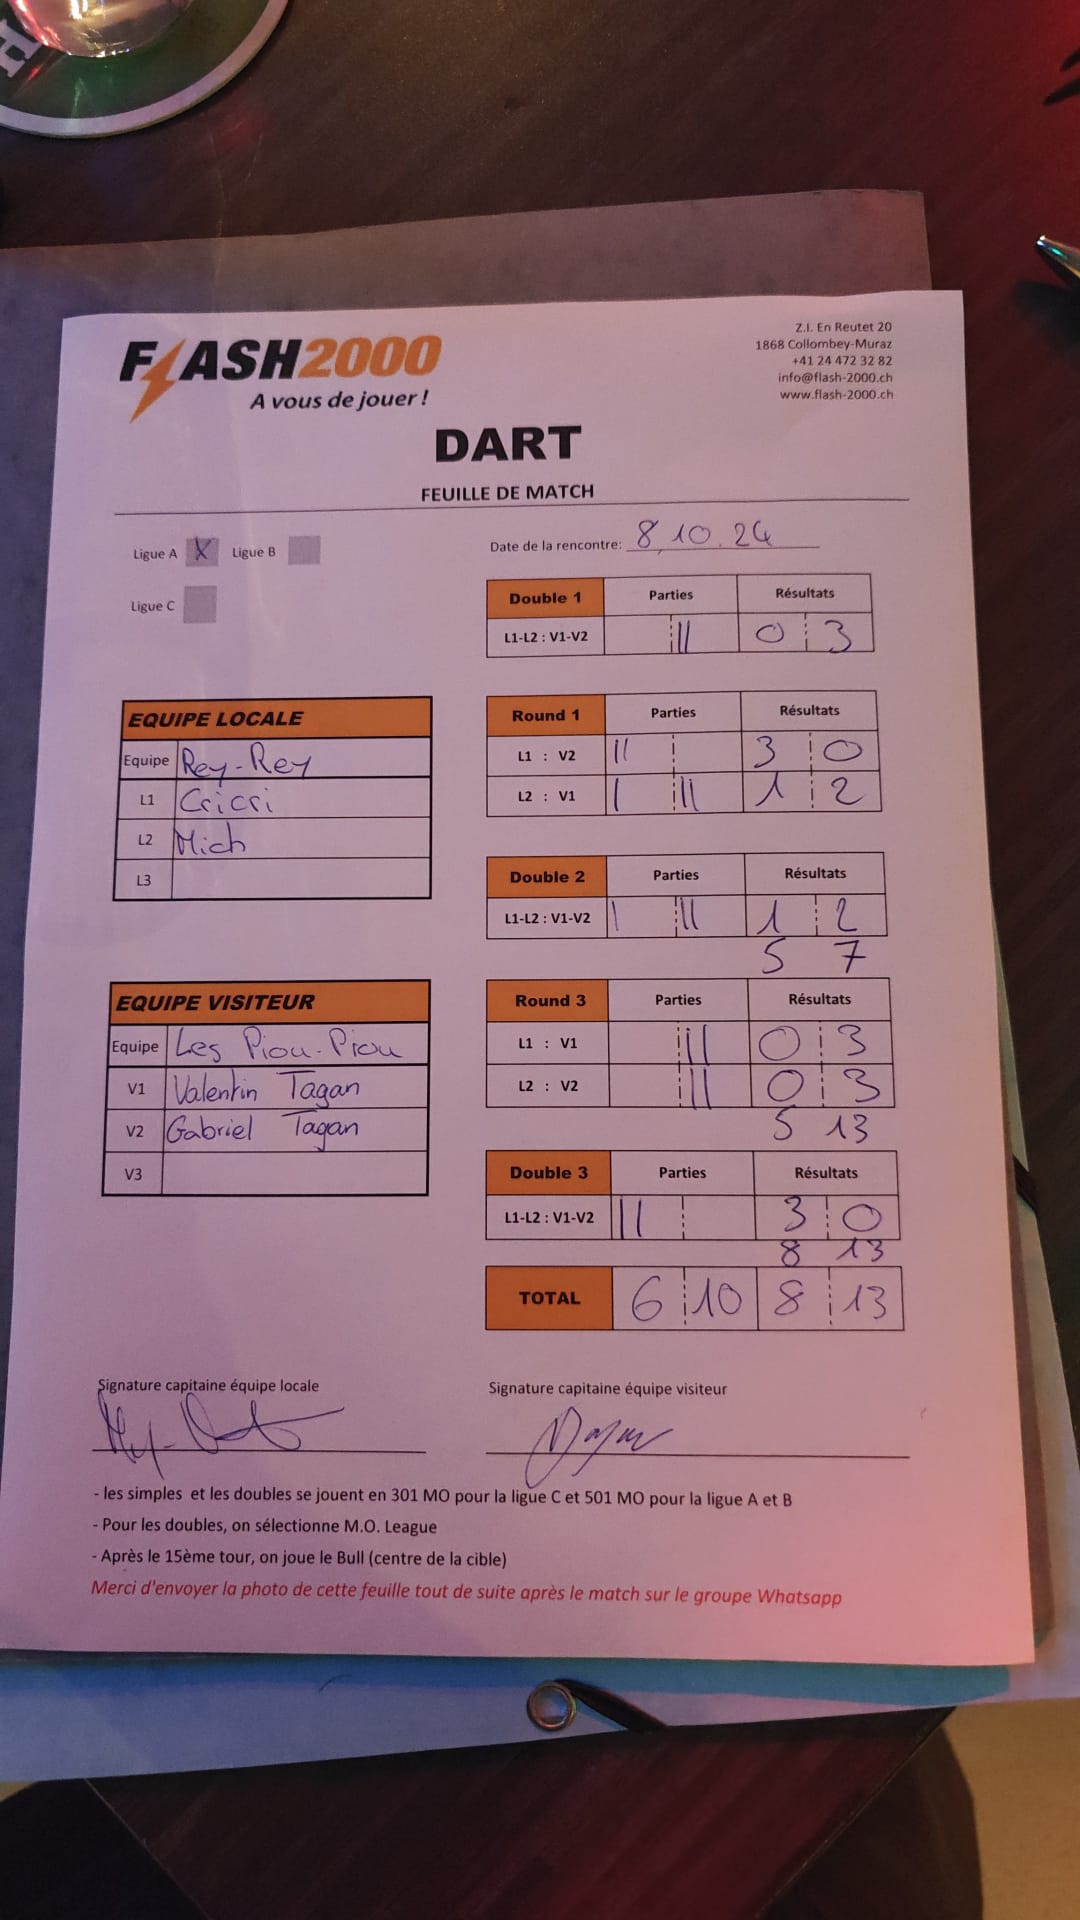 FLASH2000
A vous de jouer !
Z.I. En Reutet 20
1868 Collombey-Muraz
+41 24 472 32 82
info@flash-2000.ch
www.flash-2000.ch
DART
FEUILLE DE MATCH
Ligue A X Ligue B
Ligue C
Date de la rencontre: 8.10.24
Double 1 Parties Résultats
L1-L2 : V1-V2 || 0 3
EQUIPE LOCALE
Equipe Rey-Rey
L1 Cricri
L2 Mich
L3
Round 1 Parties Résultats
L1 : V2 || 3 0
L2 : V1 | || 1 2
Double 2 Parties Résultats
L1-L2 : V1-V2 | || 1 2
5 7
EQUIPE VISITEUR
Equipe Les Piou-Piou
V1 Valentin Tagan
V2 Gabriel Tagan
V3
Round 3 Parties Résultats
L1 : V1 || 0 3
L2 : V2 || 0 3
5 13
Double 3 Parties Résultats
L1-L2 : V1-V2 || 3 0
8 13
TOTAL 6 10 8 13
Signature capitaine équipe locale
Signature capitaine équipe visiteur
- les simples et les doubles se jouent en 301 MO pour la ligue C et 501 MO pour la ligue A et B
- Pour les doubles, on sélectionne M.O. League
- Après le 15ème tour, on joue le Bull (centre de la cible)
Merci d'envoyer la photo de cette feuille tout de suite après le match sur le groupe Whatsapp